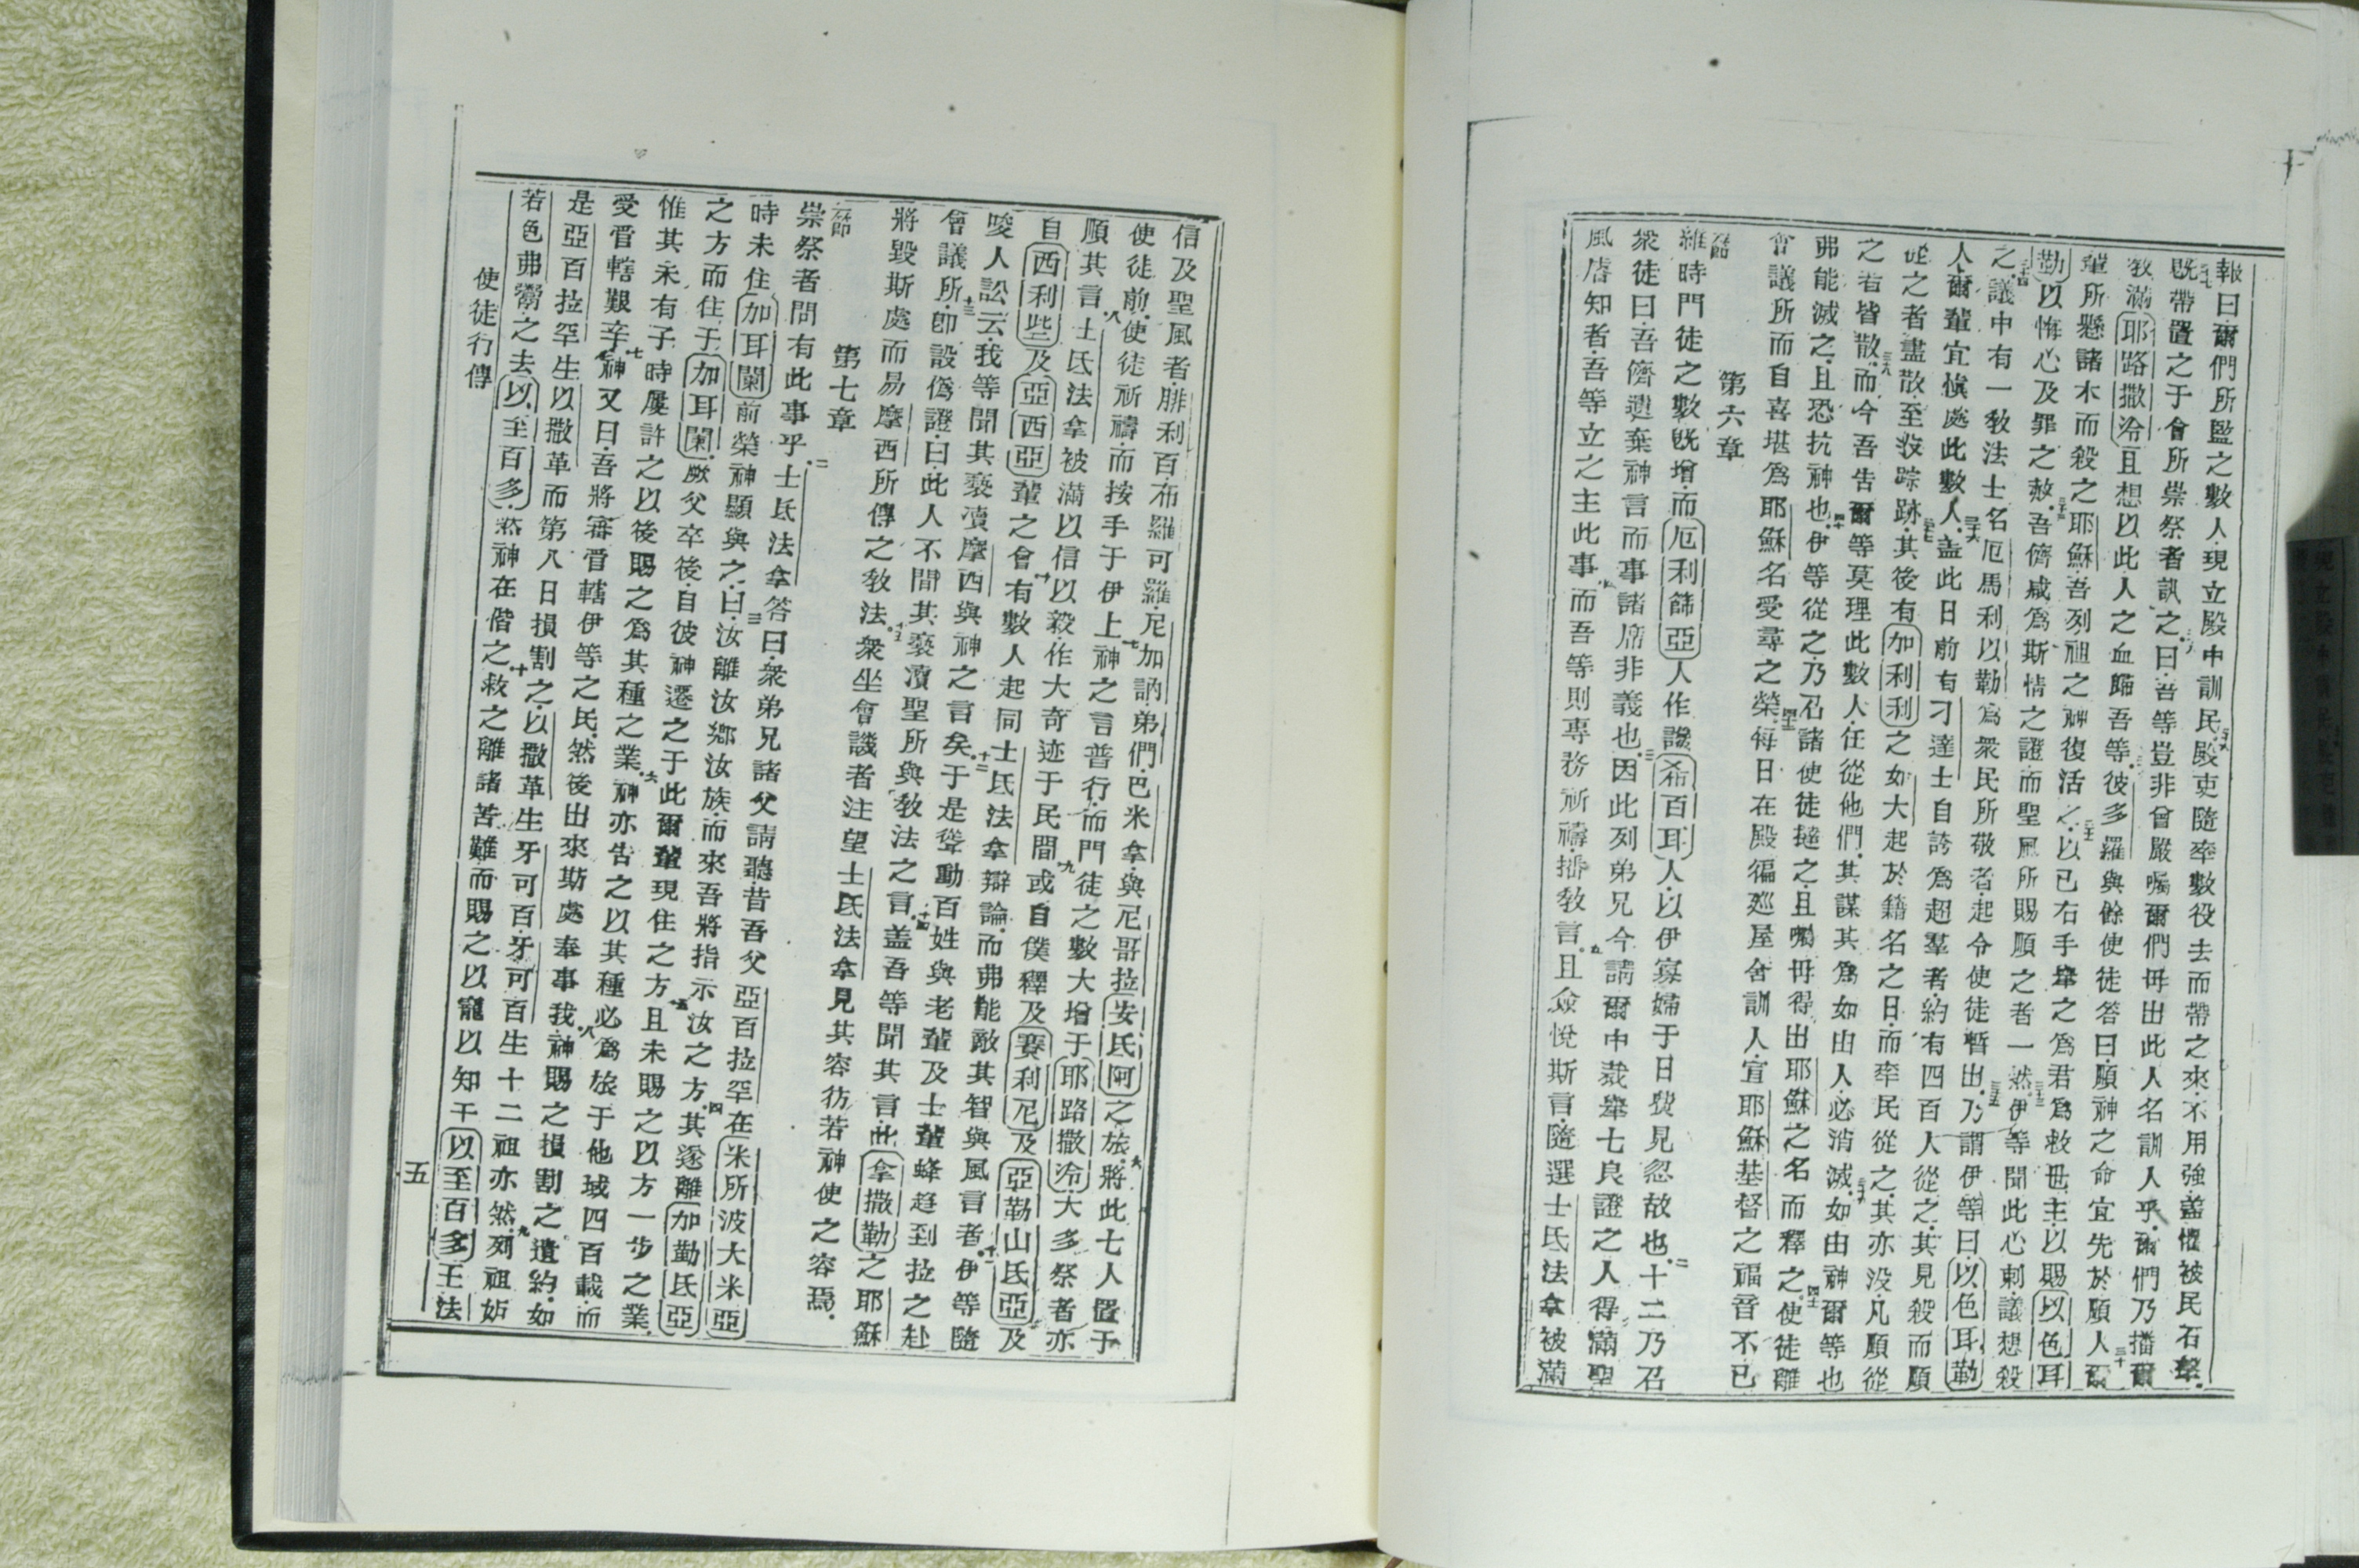 報曰爾們所監之數人現立殿中訓民殿吏隨率數役去而帶之來不用強蓋懼被民石擊
既帶置之于會所崇祭者訊之曰吾等豈非曾嚴囑爾們毋出此人名訓人乎爾們乃播爾
敎滿耶路撒冷且想以此人之血歸吾等彼多羅與餘使徒答曰順神之命宜先於順人爾
輩所懸諸木而殺之耶穌吾列祖之神復活之以已右手舉之為君為救世主以賜以色耳
勒以悔心及罪之赦吾儕咸為斯情之證而聖風所賜順之者一然伊等聞此心刺議想殺
之議中有一敎法士名厄馬利以勒為衆民所敬者起令使徒暫出乃謂伊等曰以色耳勒
人爾輩宜慎處此數人蓋此日前有刁達士自誇為超羣者約有四百人從之其見殺而順
從之者盡散至沒踪跡其後有加利利之如大起於籍名之日而率民從之其亦沒凡順從
之者皆散而今吾告爾等莫理此數人任從他們其謀其為如由人必消滅如由神爾等也
弗能滅之且恐抗神也伊等從之乃召諸使徒撻之且囑毋得出耶穌之名而釋之使徒離
會議所而自喜堪為耶穌名受辱之榮每日在殿徧廵屋舍訓人宣耶穌基督之福音不已
第六章
節
維時門徒之數旣增而厄利篩亞人作譏希百耳人以伊寡婦于日費見忽故也十二乃召
衆徒曰吾儕遺棄神言而事諸席非義也因此列弟兄今請爾中裁舉七良證之人得滿聖
風虐知者吾等立之主此事而吾等則專務祈禱播敎言且僉悅斯言隨選士氐法拿被滿
信及聖風者腓利百布羅可羅尼加訥弟們巴米拿與尼哥拉安氐阿之旅將此七人置于
使徒前使徒祈禱而按手于伊上神之言普行而門徒之數大增于耶路撒冷大多祭者亦
順其言士氐法拿被滿以信以毅作大奇迹于民間或自僕釋及賽利尼及亞勒山氐亞及
自西利些及亞西亞輩之會有數人起同士氐法拿辯論而弗能敵其智與風言者伊等隨
唆人訟云我等聞其褻瀆摩西與神之言矣于是聳動百姓與老輩及士輩蜂趨到拉之赴
會議所卽設僞證曰此人不間其褻瀆聖所與敎法之言蓋吾等聞其言此拿撒勒之耶穌
將毀斯處而易摩西所傳之敎法衆坐會議者注望士氐法拿見其容彷若神使之容焉
第七章
節
崇祭者問有此事乎士氐法拿答曰衆弟兄諸父請聽昔吾父亞百拉罕在米所波大米亞
時未住加耳闌前榮神顯與之曰汝離汝鄉汝族而來吾將指示汝之方其遂離加勒氐亞
之方而住于加耳闌厥父卒後自彼神遷之于此爾輩現住之方且未賜之以方一步之業
惟其未有子時屢許之以後賜之為其種之業神亦告之以其種必為旅于他域四百載而
受管轄艱辛神又曰吾將審管轄伊等之民然後出來斯處奉事我神賜之損割之遺約如
是亞百拉罕生以撒革而第八日損割之以撒革生牙可百牙可百生十二祖亦然列祖妬
若色弗鬻之去以至百多然神在偕之救之離諸苦難而賜之以寵以知于以至百多王法
使徒行傳
五